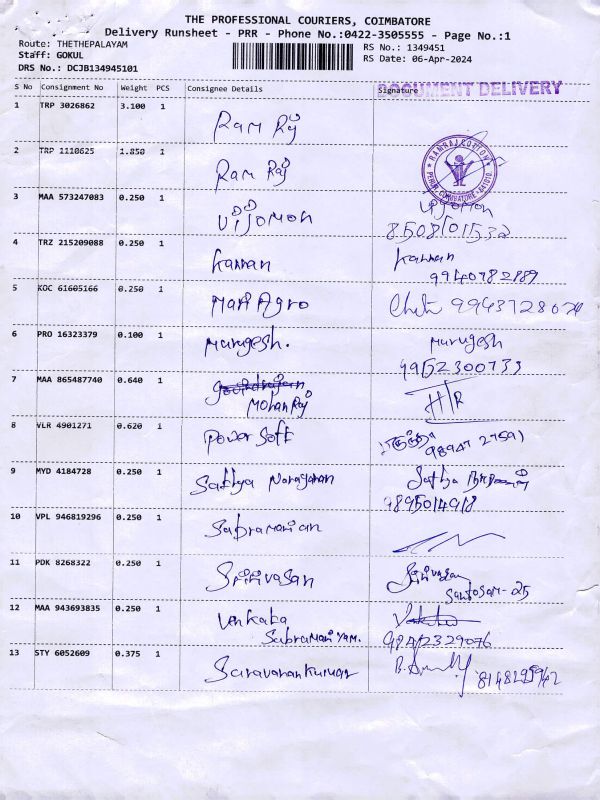 THE PROFESSIONAL COURIERS, COIMBATORE
Delivery Runsheet - PRR - Phone No.:0422-3505555 - Page No.:1
Route: THETHEPALAYAM
Staff: GOKUL
DRS No.: DCJB134945101
RS No.: 1349451
RS Date: 06-Apr-2024
DOCUMENT DELIVERY
S No Consignment No Weight PCS Consignee Details Signature
1 TRP 3026862 3.100 1 Ram Raj
2 TRP 1110625 1.850 1 Ram Raj
3 MAA 573247083 0.250 1 Vijomon Vijomon
8508101532
4 TRZ 215209088 0.250 1 Kannan Kannan
9940782189
5 KOC 61605166 0.250 1 Mari Agro
6 PRO 16323379 0.100 1 Murugesh. Murugesh
9952300733
7 MAA 865487740 0.640 1
Mohan Raj
8 VLR 4901271 0.620 1 Power Soft
9 MYD 4184728 0.250 1 Sathya Narayanan Sathya
9895014918
10 VPL 946819296 0.250 1 Subramanian
11 PDK 8268322 0.250 1 Srinivasan Srinivasan
12 MAA 943693835 0.250 1 Venkata
Subramaniyam.
9842329076
13 STY 6052609 0.375 1 Saravanankumar